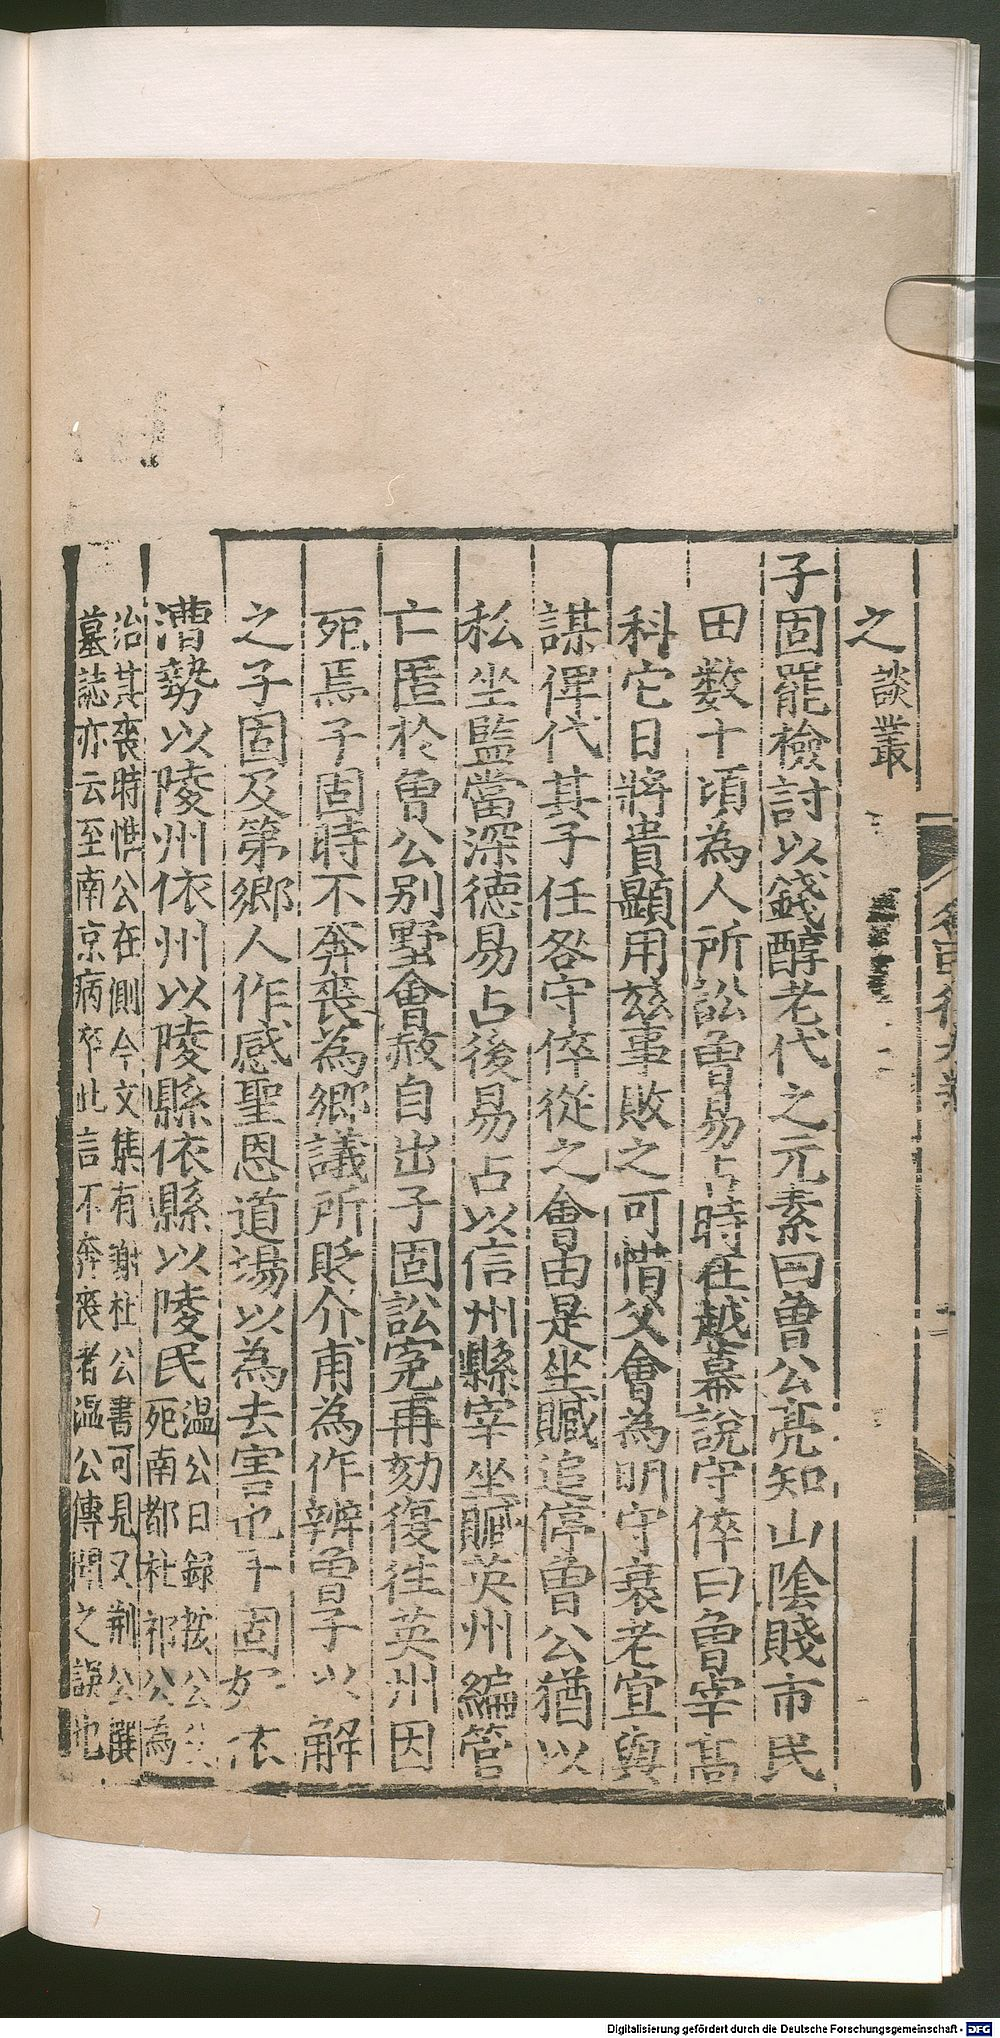 之談叢
子固罷檢討以錢醇老代之元素曰曾公亮知山陰賤市民
田數十頃為人所訟曾易占時在越幕說守倅曰曾宰高
科它日將貴顯用茲事敗之可惜父會為明守衰老宜與
謀俾代其子任咎守倅從之會由是坐贓追停曾公猶以
私坐監當深德易占後易占以信州縣宰坐贓英州編管
亡匿於曾公別墅會赦自出子固訟冤再劾復往英州因
死焉子固時不奔喪為鄉議所貶介甫為作辨曾子以解
之子固及第鄉人作感聖恩道場以為去害也子固好依
漕勢以陵州依州以陵縣依縣以陵民溫公日錄按公
死南都杜祁公為
治其喪時惟公在側今文集有謝杜公書可見又荊公譔
墓誌亦云至南京病卒此言不奔喪者溫公傳聞之誤也
Digitalisierung gefördert durch die Deutsche Forschungsgemeinschaft - DFG